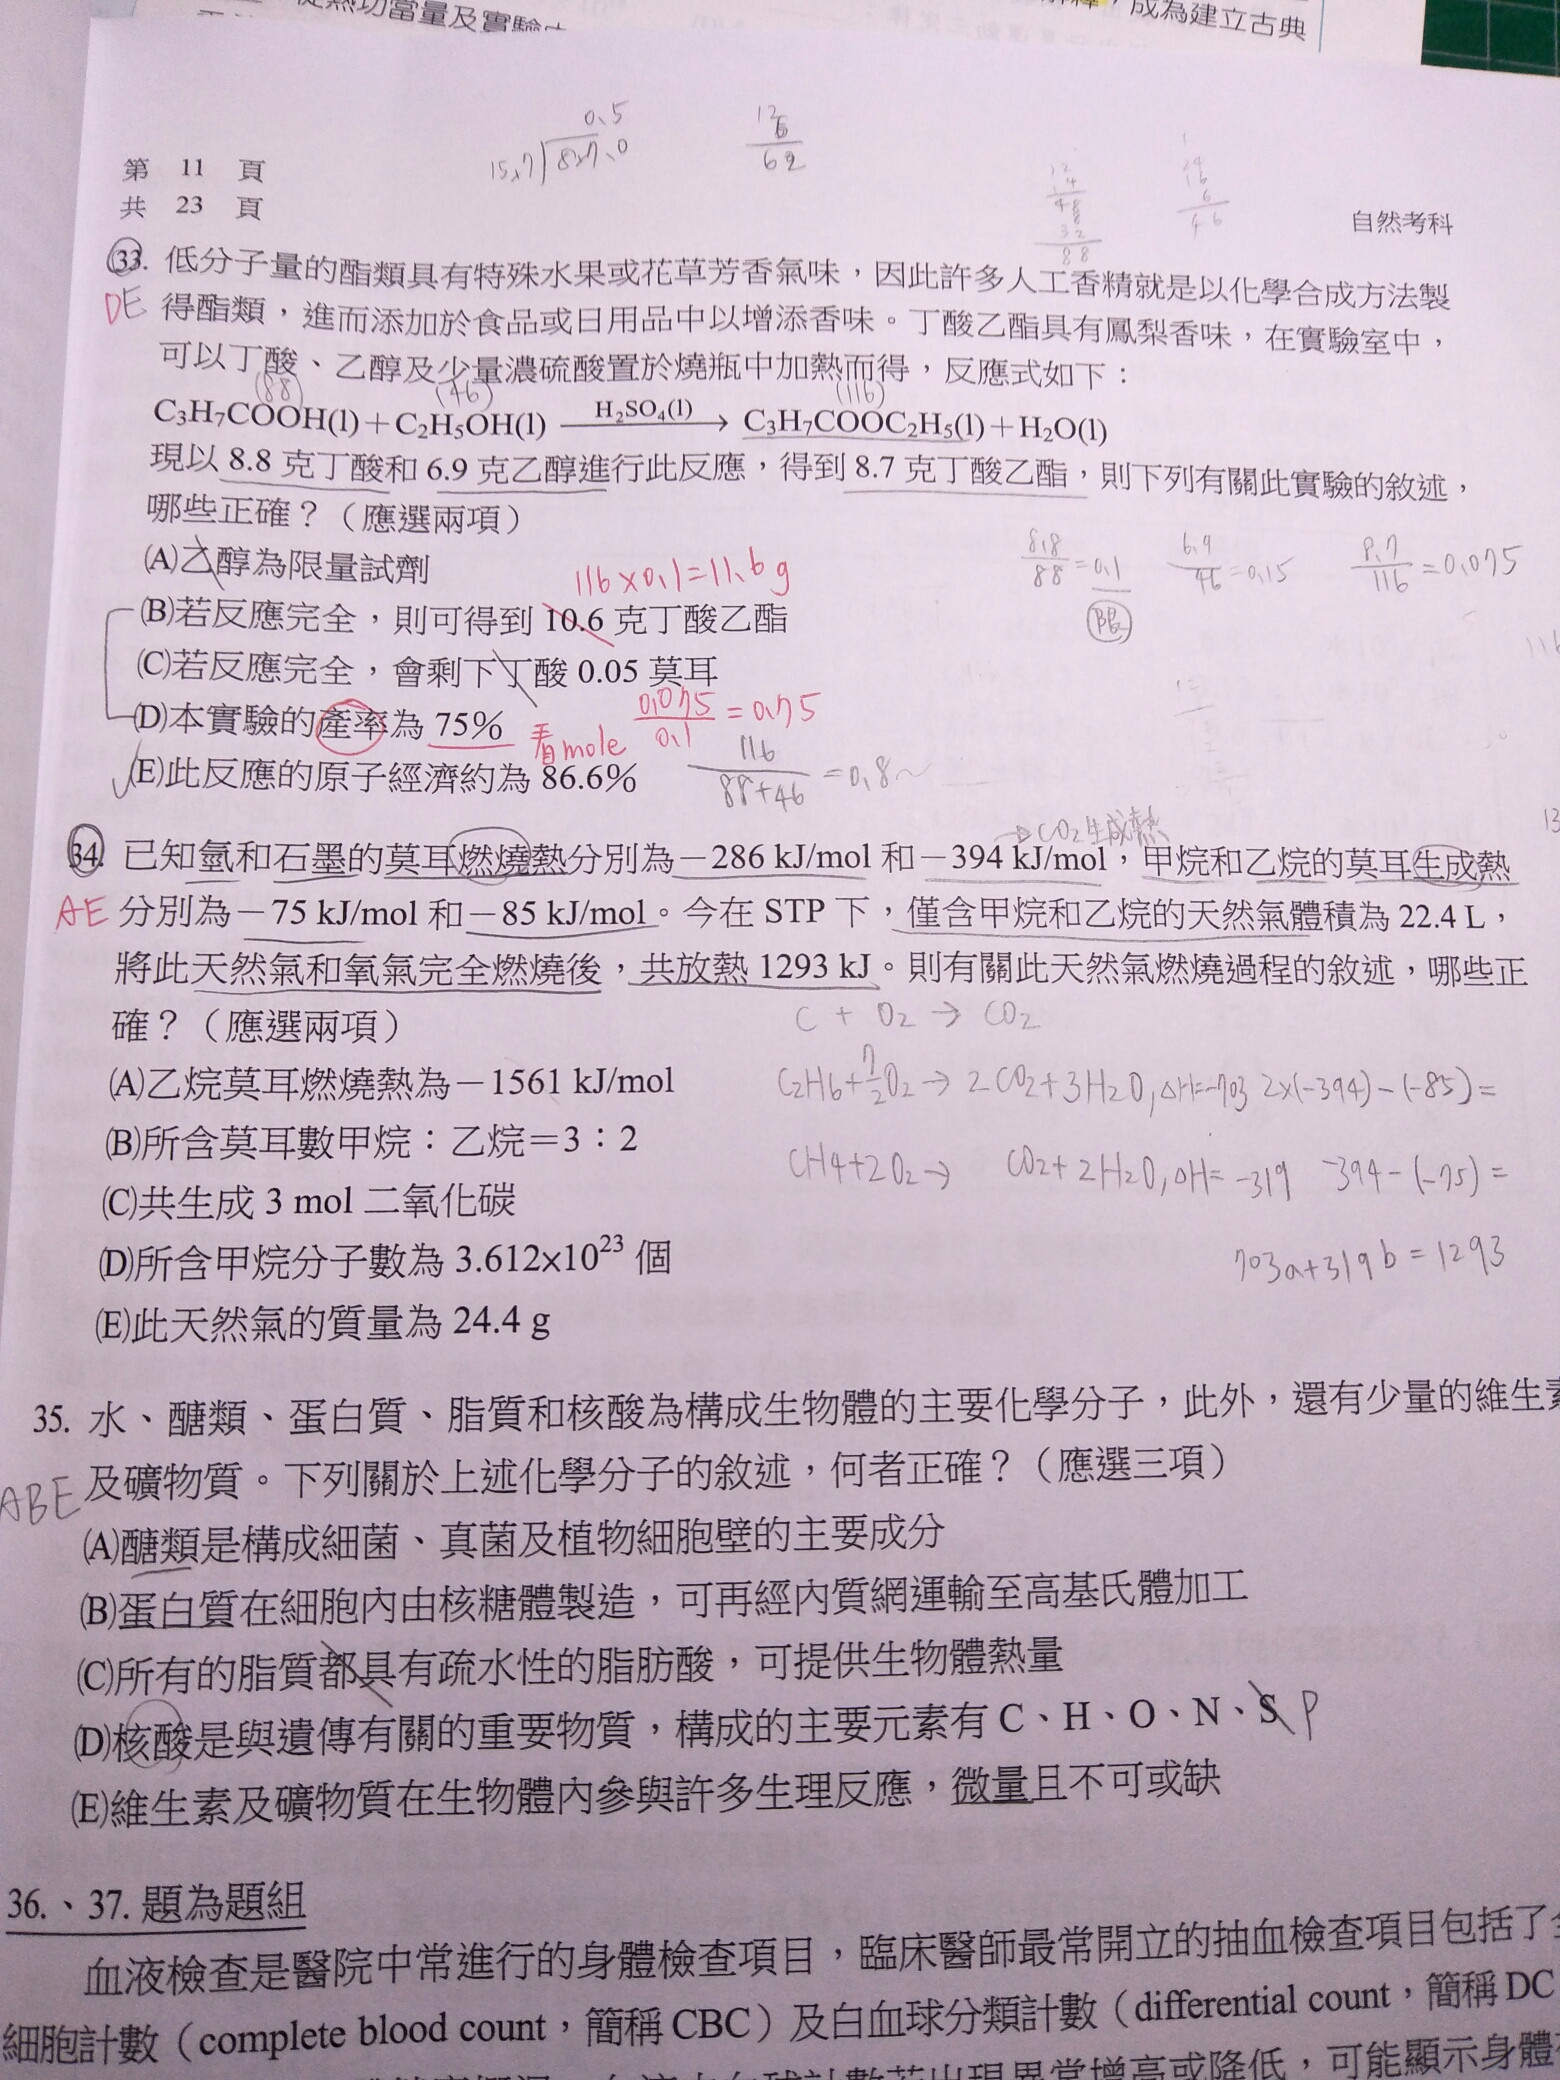 從熱功當量及實驗
成為建立古典
0.5
15.7 827.0
12
6
62
12
4
48
8
32
88
46
第 11 頁
共 23 頁
自然考科
33. 低分子量的酯類具有特殊水果或花草芳香氣味，因此許多人工香精就是以化學合成方法製
DE 得酯類，進而添加於食品或日用品中以增添香味。丁酸乙酯具有鳳梨香味，在實驗室中，
可以丁酸、乙醇及少量濃硫酸置於燒瓶中加熱而得，反應式如下：
(88) (46) (116)
C₃H₇COOH(l)＋C₂H₅OH(l) H₂SO₄(l) → C₃H₇COOC₂H₅(l)＋H₂O(l)
現以 8.8 克丁酸和 6.9 克乙醇進行此反應，得到 8.7 克丁酸乙酯，則下列有關此實驗的敘述，
哪些正確？（應選兩項）
8.8/88=0.1 6.9/46=0.15 8.7/116=0.075
限
(A)乙醇為限量試劑
116×0.1=11.6g
(B)若反應完全，則可得到 10.6 克丁酸乙酯
(C)若反應完全，會剩下丁酸 0.05 莫耳
(D)本實驗的產率為 75% 看mole 0.075/0.1=0.75
(E)此反應的原子經濟約為 86.6% 116/88+46=0.8~
→CO₂生成熱
34. 已知氫和石墨的莫耳燃燒熱分別為－286 kJ/mol 和－394 kJ/mol，甲烷和乙烷的莫耳生成熱
AE 分別為－75 kJ/mol 和－85 kJ/mol。今在 STP 下，僅含甲烷和乙烷的天然氣體積為 22.4 L，
將此天然氣和氧氣完全燃燒後，共放熱 1293 kJ。則有關此天然氣燃燒過程的敘述，哪些正
確？（應選兩項）
C + O₂ → CO₂
(A)乙烷莫耳燃燒熱為－1561 kJ/mol
C₂H₆+7/2O₂→2CO₂+3H₂O, ΔH=-703 2×(-394)-(-85)=
(B)所含莫耳數甲烷：乙烷＝3：2
CH₄+2O₂→ CO₂+2H₂O, ΔH=-319 -394-(-75)=
(C)共生成 3 mol 二氧化碳
(D)所含甲烷分子數為 3.612×10²³ 個
703a+319b=1293
(E)此天然氣的質量為 24.4 g
35. 水、醣類、蛋白質、脂質和核酸為構成生物體的主要化學分子，此外，還有少量的維生素
ABE 及礦物質。下列關於上述化學分子的敘述，何者正確？（應選三項）
(A)醣類是構成細菌、真菌及植物細胞壁的主要成分
(B)蛋白質在細胞內由核糖體製造，可再經內質網運輸至高基氏體加工
(C)所有的脂質都具有疏水性的脂肪酸，可提供生物體熱量
(D)核酸是與遺傳有關的重要物質，構成的主要元素有 C、H、O、N、S P
(E)維生素及礦物質在生物體內參與許多生理反應，微量且不可或缺
36.、37. 題為題組
血液檢查是醫院中常進行的身體檢查項目，臨床醫師最常開立的抽血檢查項目包括了
細胞計數（complete blood count，簡稱 CBC）及白血球分類計數（differential count，簡稱 DC
可能顯示身體